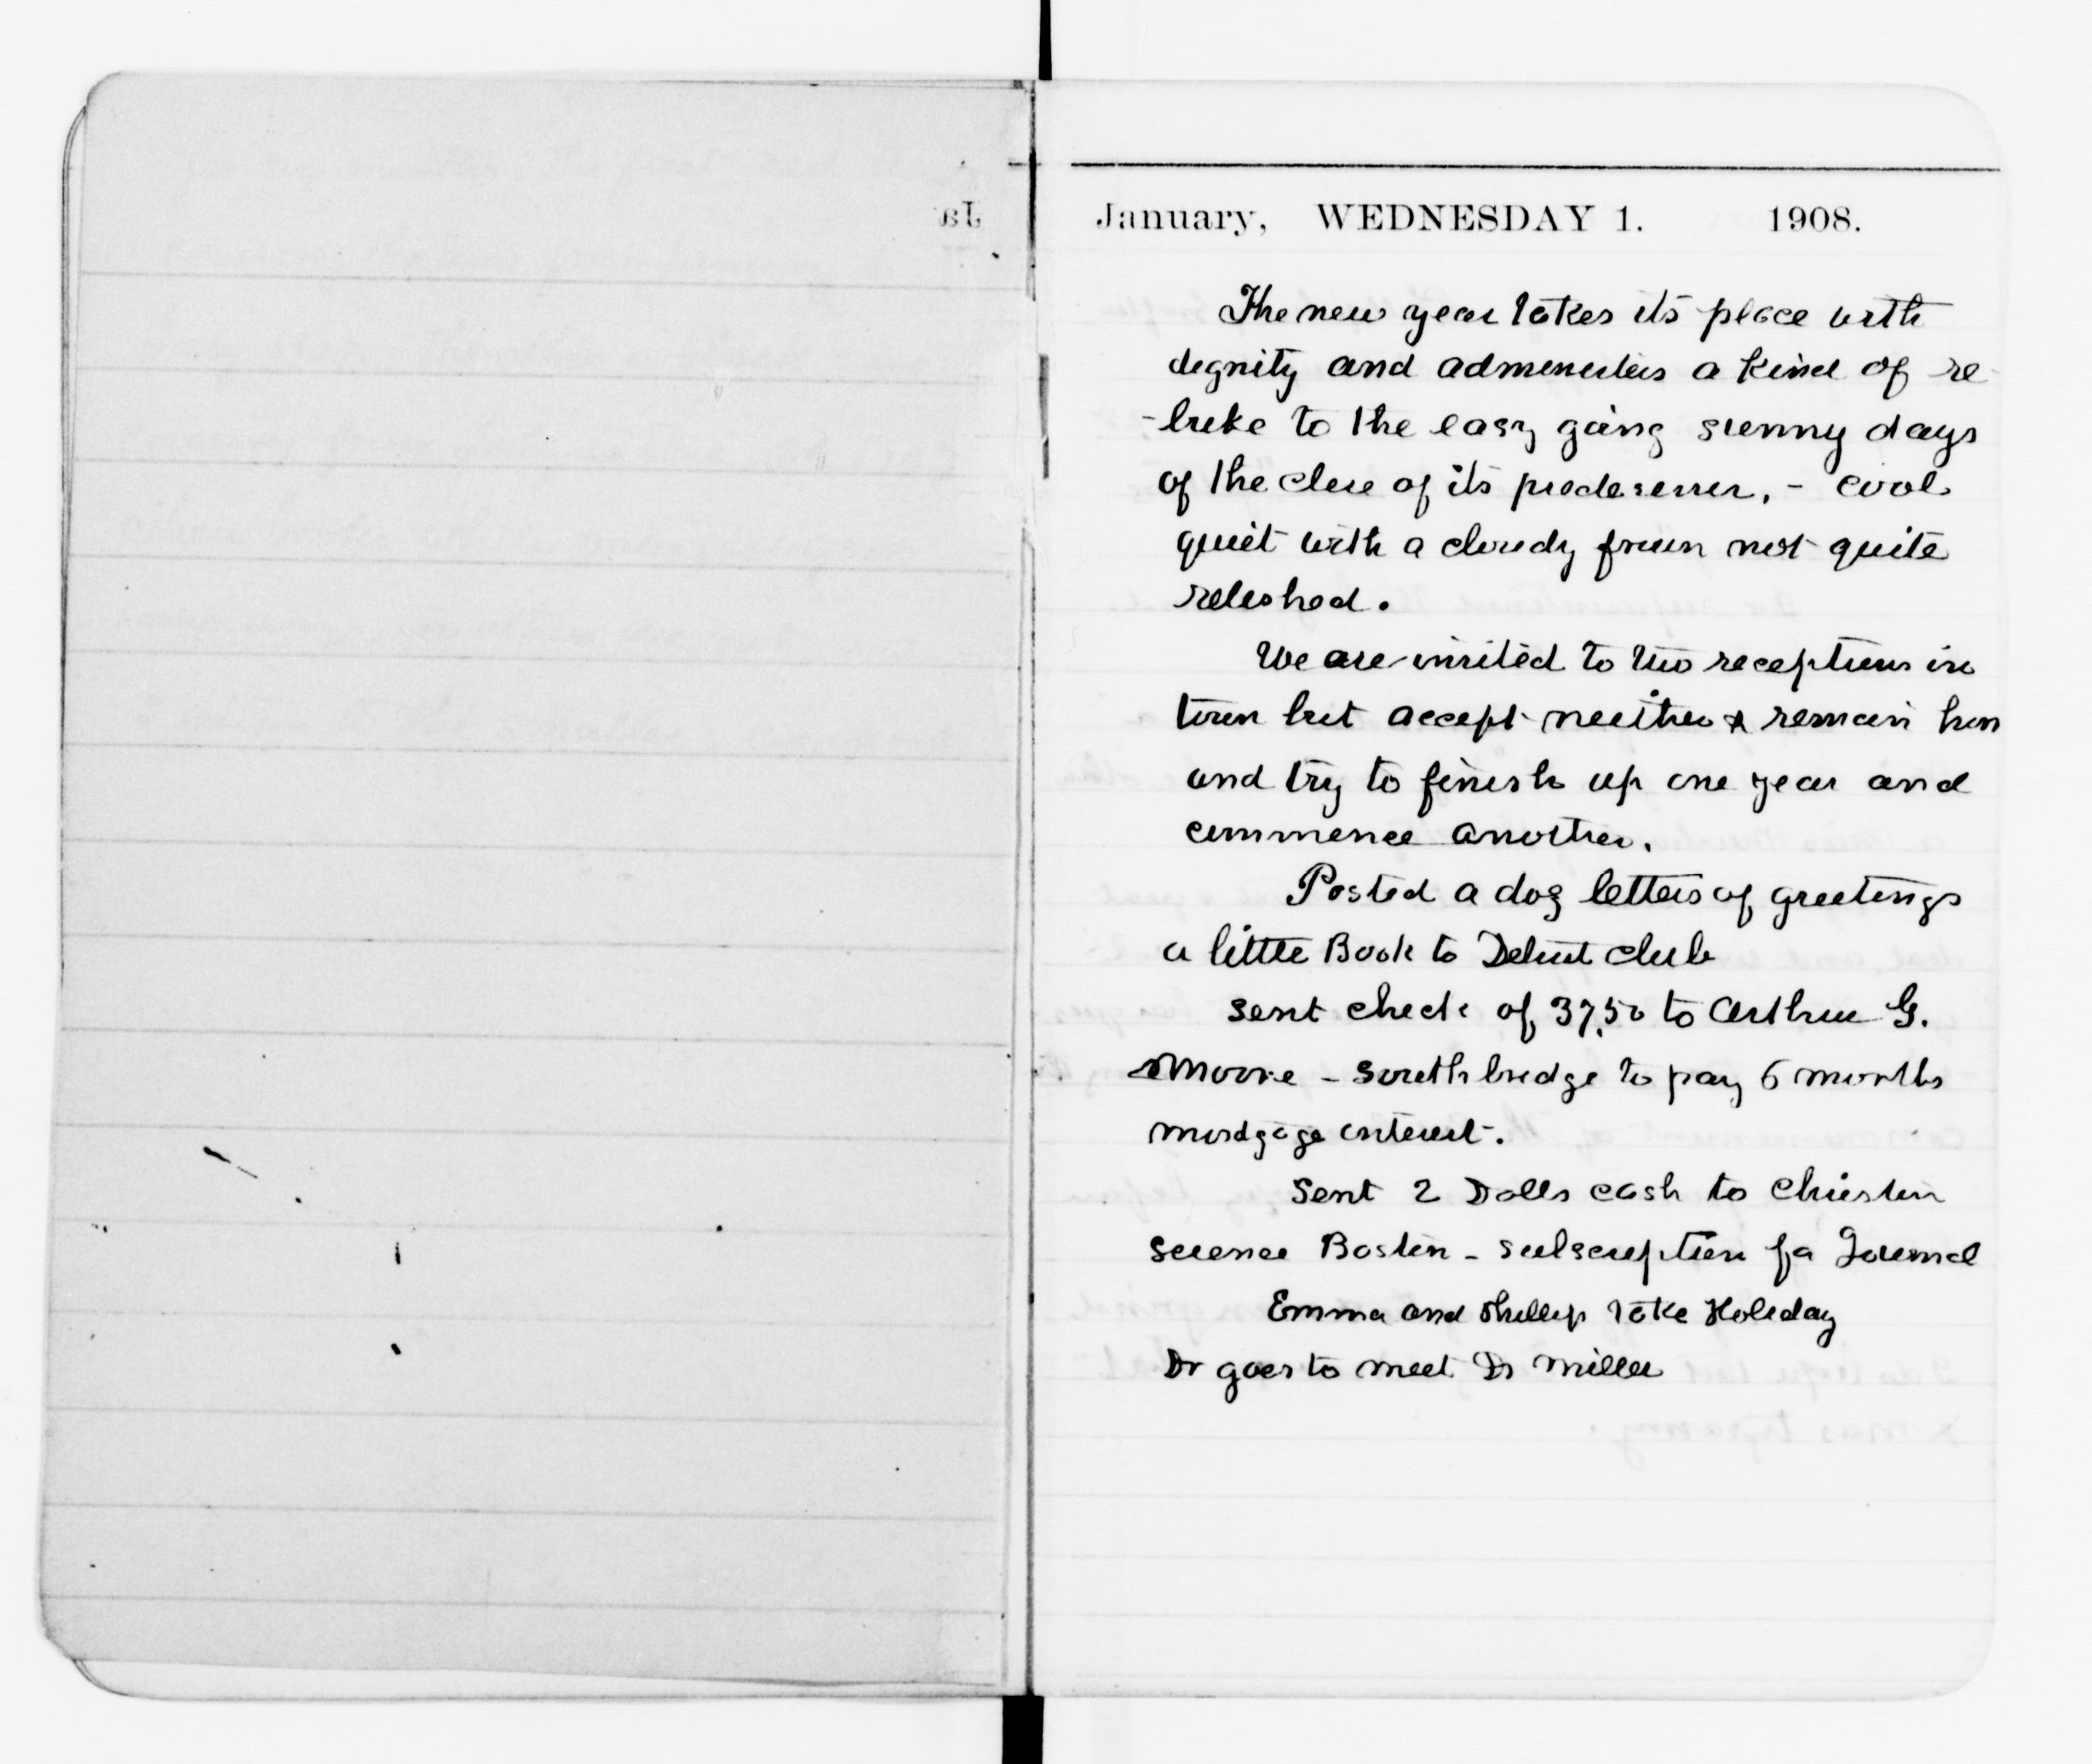 January, WEDNESDAY 1. 1908.
The new year takes its place with
dignity and administers a kind of re-
-buke to the easy going sunny days
of the close of its predesessor, - cool
quiet with a cloudy frown not quite
relished.
We are invited to two receptions in
town but accept neither & remain hom
and try to finish up one year and
commence another.
Posted a doz letters of greetings
a little Book to Debut club
sent check of 37,50 to Arthur G.
Moore - Southbridge to pay 6 months
mordgage interest.
Sent 2 Dolls cash to Christin
Science Boston - subscription fa Journal
Emma and Phillip take Holiday
Dr goes to meet Dr Miller